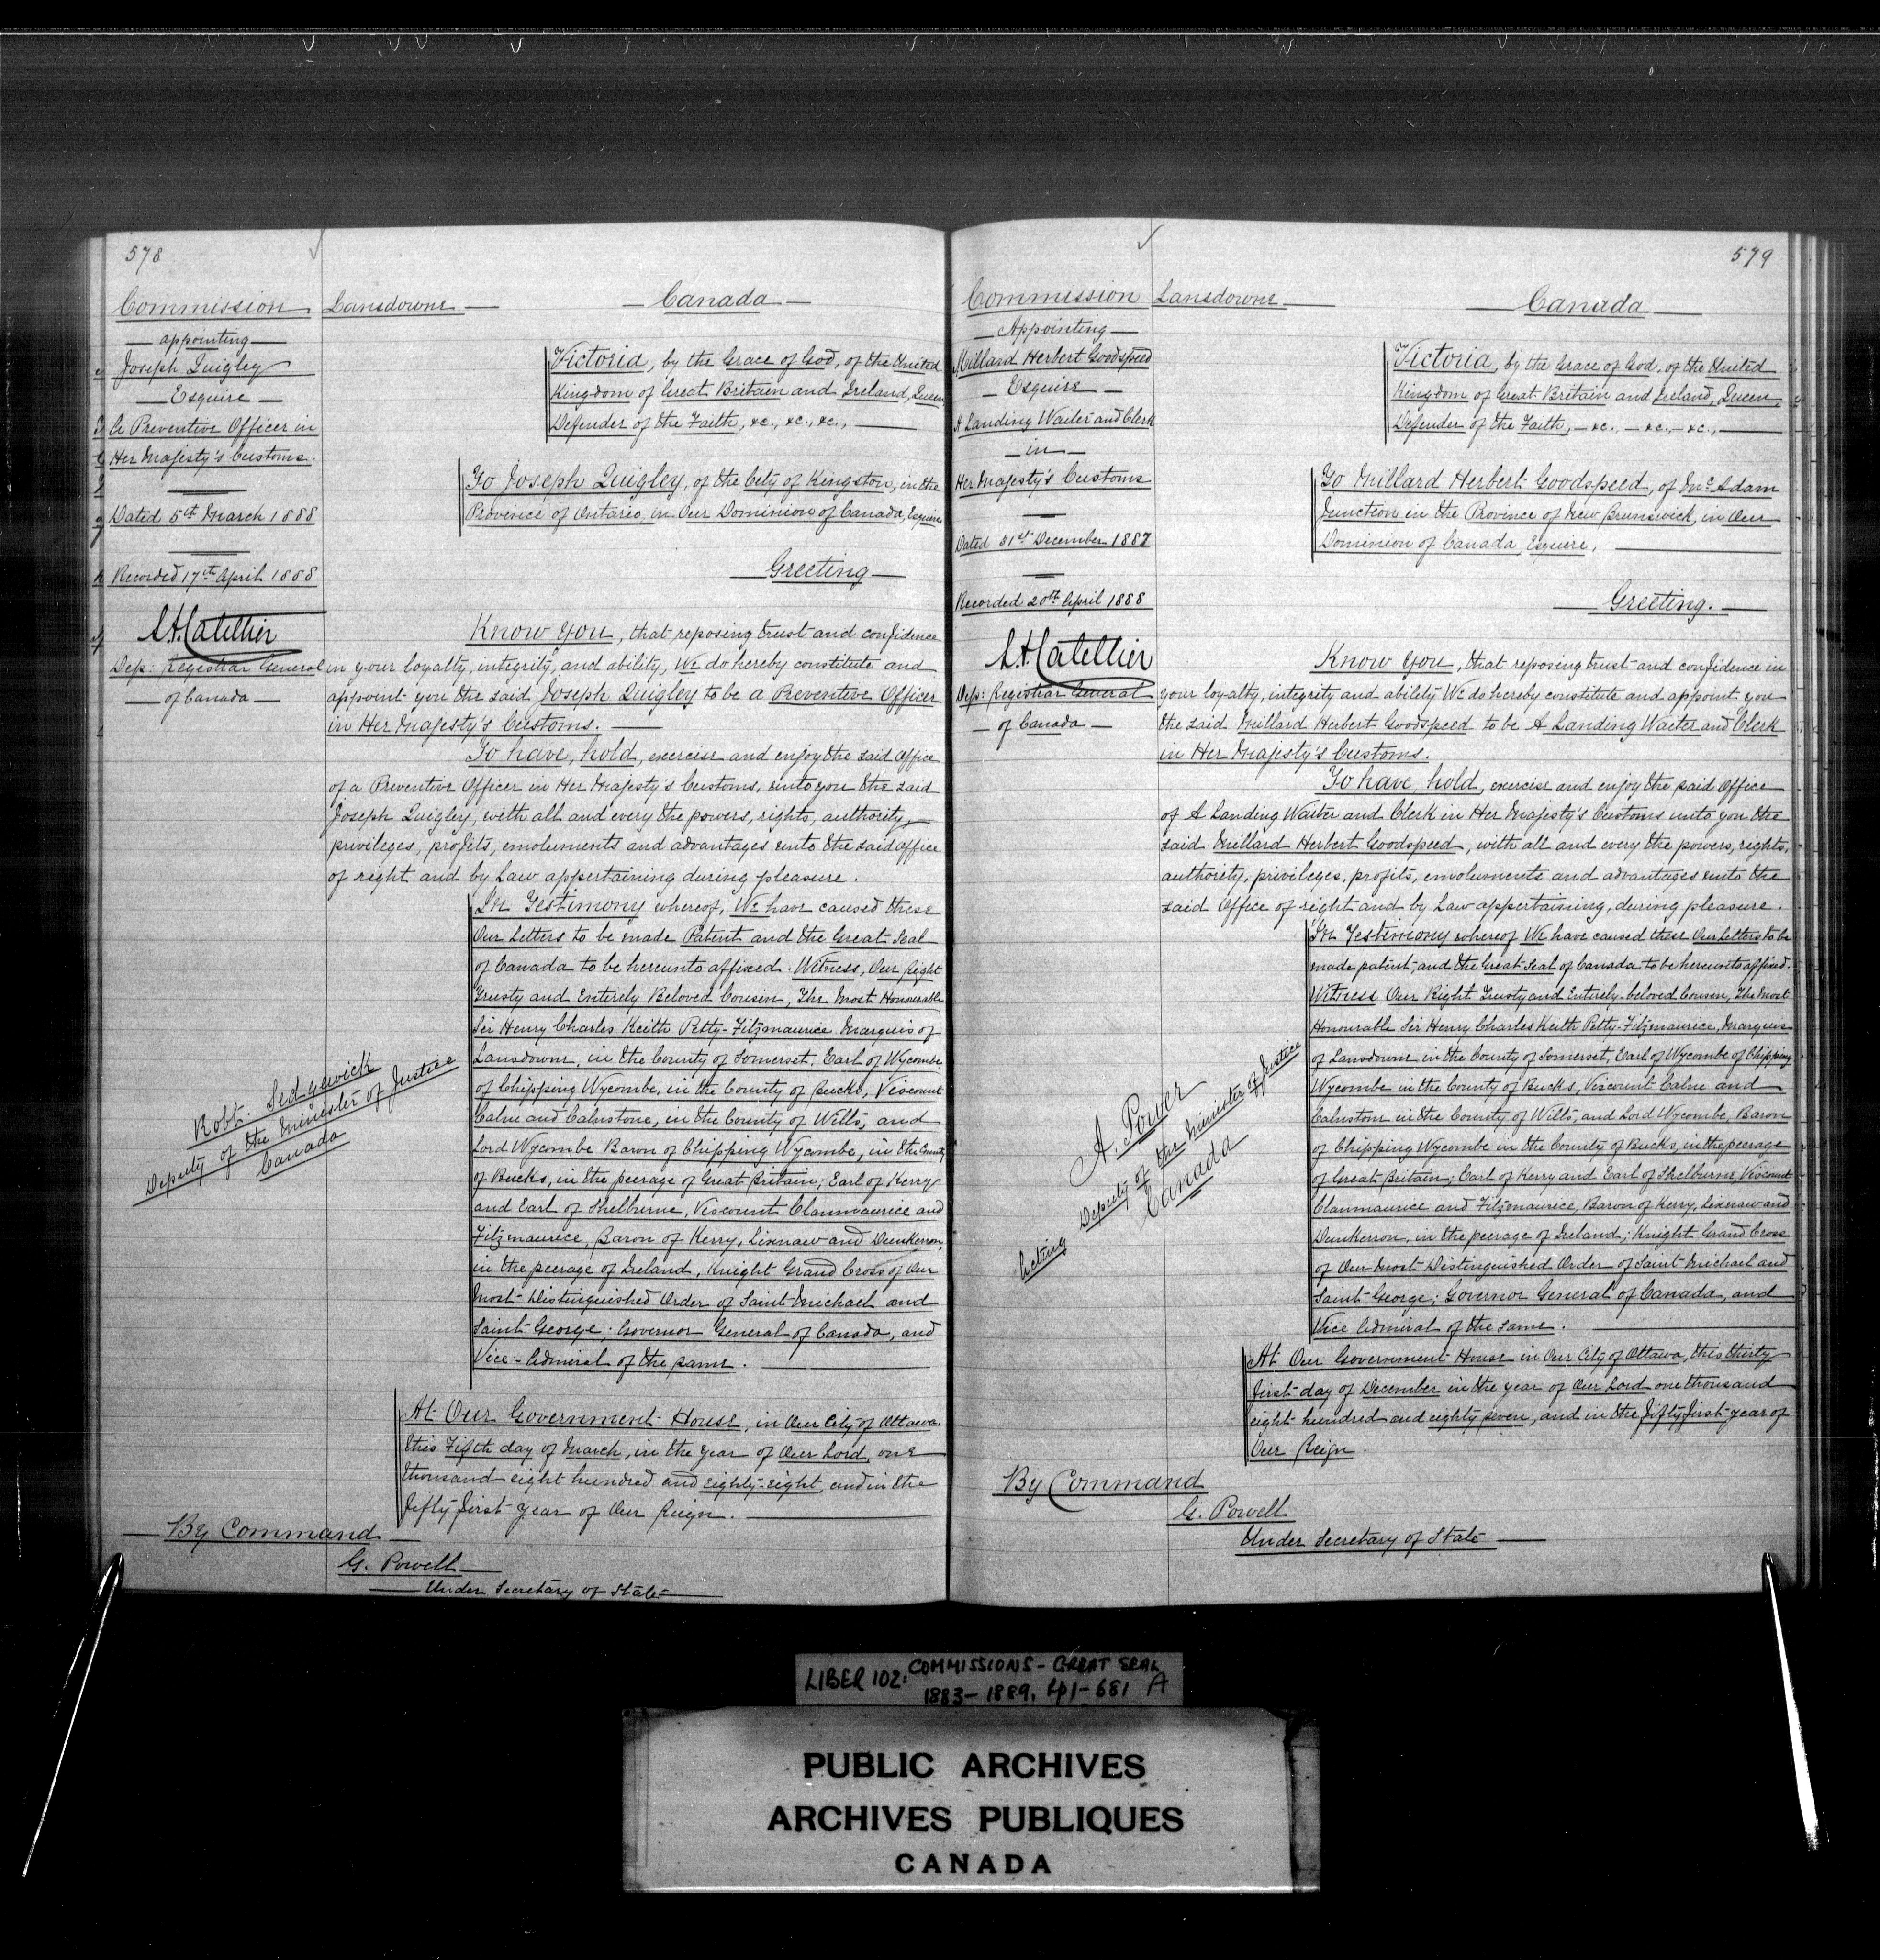 578
Commission
appointing
Joseph Quigley
Esquire
A Preventive Officer in
Her Majesty's Customs.
Dated 5th March 1888
Recorded 17th April 1888
L.A. Catellier
Dep: Registrar General
of Canada
Robt. Sedgewick
Deputy of the Minister of Justice
Canada
Lansdowne
Canada
Victoria, by the Grace of God, of the United
Kingdom of Great Britain and Ireland, Queen,
Defender of the Faith, &c., &c., &c.,
To Joseph Quigley, of the City of Kingston, in the
Province of Ontario in Our Dominion of Canada, Esquire
Greeting
Know You, that reposing trust and confidence
in your loyalty, integrity, and ability, We do hereby constitute and
appoint you the said Joseph Quigley to be a Preventive Officer
in Her Majesty's Customs.
To have, hold, exercise and enjoy the said Office
of a Preventive Officer in Her Majesty's Customs, unto you the said
Joseph Quigley, with all and every the powers, rights, authority,
privileges, profits, emoluments and advantages unto the said office
of right and by Law appertaining during pleasure.
In Testimony whereof, We have caused these
Our Letters to be made Patent and the Great Seal
of Canada to be hereunto affixed. Witness, Our Right
Trusty and Entirely Beloved Cousin, The Most Honourable
Sir Henry Charles Keith Petty-Fitzmaurice Marquis of
Lansdowne, in the County of Somerset, Earl of Wycombe,
of Chipping Wycombe, in the County of Bucks, Viscount
Calne and Calnstone, in the County of Wilts, and
Lord Wycombe Baron of Chipping Wycombe, in the County
of Bucks, in the peerage of Great Britain; Earl of Kerry
and Earl of Shelburne, Viscount Clanmaurice and
Fitzmaurice, Baron of Kerry, Lixnaw and Dunkerron,
in the peerage of Ireland, Knight Grand Cross of Our
Most Distinguished Order of Saint Michael and
Saint George; Governor General of Canada, and
Vice-Admiral of the same.
At Our Government House, in Our City of Ottawa.
this Fifth day of March, in the Year of Our Lord, one
thousand eight hundred and eighty-eight, and in the
fifty first year of Our Reign.
By Command
G. Powell
Under Secretary of State
579
Commission
Appointing
Millard Herbert Goodspeed
Esquire
A Landing Waiter and Clerk
in
Her Majesty's Customs
Dated 31st December 1887
Recorded 20th April 1888
L.A. Catellier
Dep: Registrar General
of Canada
A. Power
Acting Deputy of the Minister of Justice
Canada
Lansdowne
Canada
Victoria, by the Grace of God, of the United
Kingdom of Great Britain and Ireland, Queen,
Defender of the Faith, &c. &c., &c.,
To Millard Herbert Goodspeed, of McAdam
Junction in the Province of New Brunswick, in Our
Dominion of Canada, Esquire,
Greeting.
Know You, that reposing trust and confidence in
your loyalty, integrity and ability We do hereby constitute and appoint you
the said Millard Herbert Goodspeed to be A Landing Waiter and Clerk
in Her Majesty's Customs.
To have, hold, exercise and enjoy the said Office
of A Landing Waiter and Clerk in Her Majesty's Customs unto you the
said Millard Herbert Goodspeed, with all and every the powers, rights,
authority, privileges, profits, emoluments and advantages unto the
said Office of right and by Law appertaining, during pleasure.
In Testimony whereof We have caused these Our Letters to be
made patent, and the Great Seal of Canada to be hereunto affixed.
Witness Our Right Trusty and Entirely-beloved Cousin, The Most
Honourable Sir Henry Charles Keith Petty-Fitzmaurice, Marquis
of Lansdowne in the County of Somerset, Earl of Wycombe of Chipping
Wycombe in the County of Bucks, Viscount Calne and
Calnston in the County of Wilts, and Lord Wycombe, Baron
of Chipping Wycombe in the County of Bucks, in the peerage
of Great Britain; Earl of Kerry and Earl of Shelburne, Viscount
Clanmaurice and Fitzmaurice, Baron of Kerry, Lixnaw and
Dunkerron, in the peerage of Ireland; Knight Grand Cross
of Our Most Distinguished Order of Saint Michael and
Saint George; Governor General of Canada, and
Vice Admiral of the same.
At Our Government House in Our City of Ottawa, this thirty
first day of December in the year of Our Lord one thousand
eight hundred and eighty seven, and in the fifty first year of
Our Reign.
By Command
G. Powell
Under Secretary of State
LIBER 102: COMMISSIONS - GREAT SEAL
1883-1889, pp1-681 A
PUBLIC ARCHIVES
ARCHIVES PUBLIQUES
CANADA